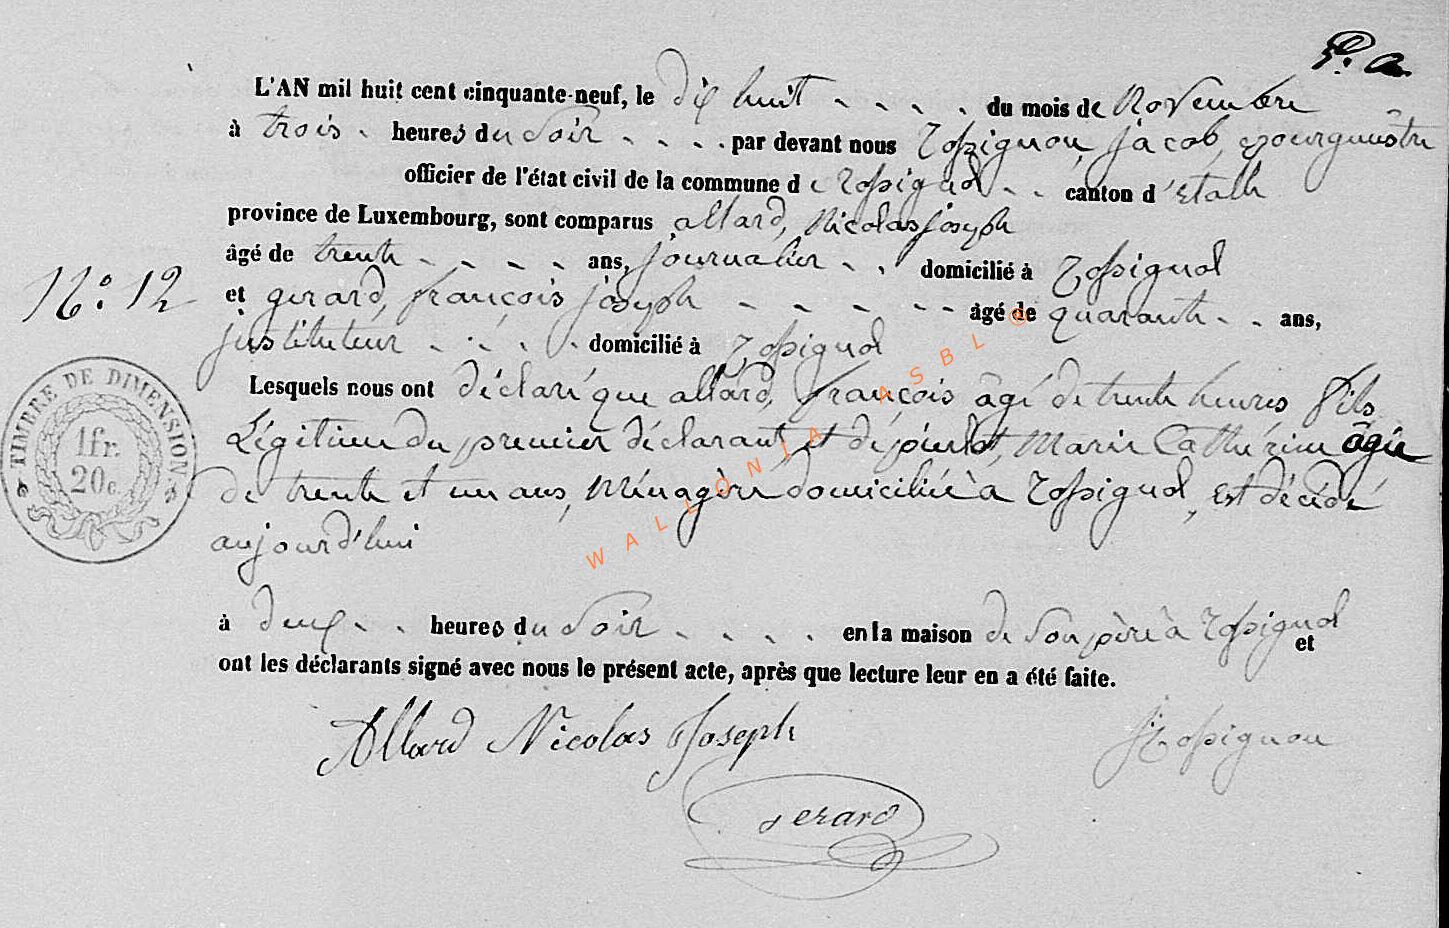 P. a.
L'AN mil huit cent cinquante-neuf, le dix huit - - - - du mois de Novembre
à trois - heures du soir - - - - par devant nous Rossignon, Jacob, Bourgmestre
officier de l'état civil de la commune de Rossignol - - canton d'Etalle
province de Luxembourg, sont comparus allard, Nicolas joseph
âgé de trente - - - - ans, journalier - - domicilié à Rossignol
N° 12
et gerard, françois joseph - - - - - - âgé de quarante - - ans,
instituteur - - - - domicilié à Rossignol
Lesquels nous ont déclaré que allard, françois âgé de trente heures fils
Légitime du premier déclarant et de pierlot, Marie Cathérine âgée
de trente et un ans, Ménagère domiciliée à Rossignol, est décédé
aujourd'hui
à deux - - heures du soir - - - - en la maison de son père à Rossignol et
ont les déclarants signé avec nous le présent acte, après que lecture leur en a été faite.
Allard Nicolas Joseph
J Rossignon
gerard
TIMBRE DE DIMENSION
1fr.
20c.
WALLONIA ASBL ©